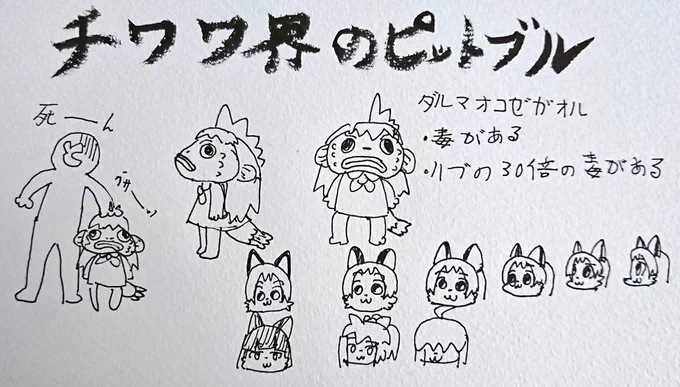 チワワ界のピットブル
死ーん
グサーッ
ダルマオコゼがオル
・毒がある
・ハブの30倍の毒がある